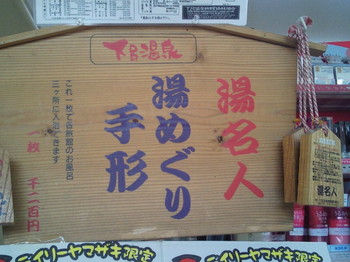 下呂温泉
湯名人
湯めぐり
手形
これ一枚で各旅館のお風呂
三ヶ所に入浴できます
一枚 千二百円
湯名人
デイリーヤマザキ限定
デイリーヤマザキ限定